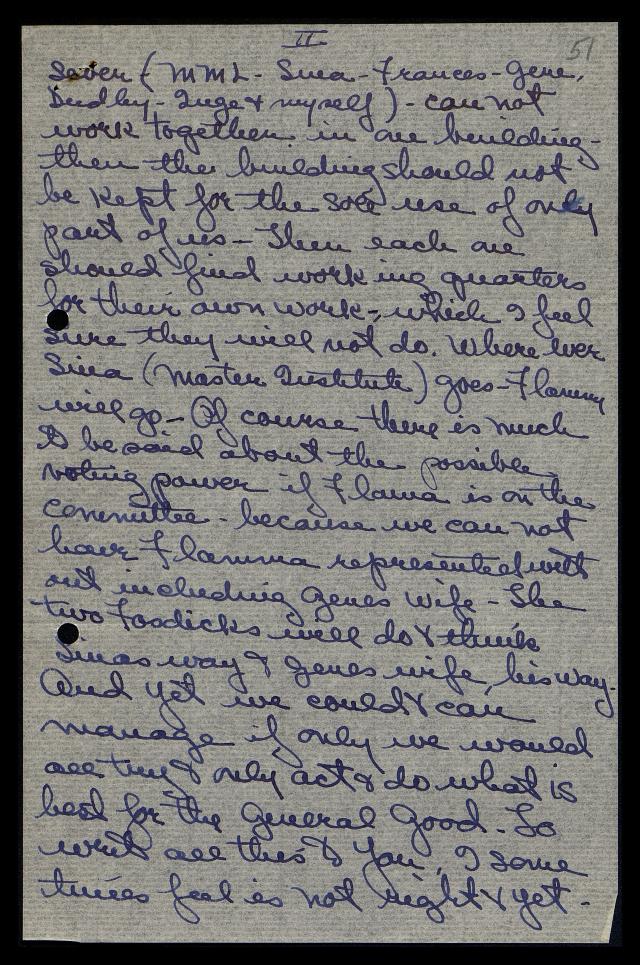 II
51
seven (MML - Sina - Frances - Gene,
Dudley - Inge & myself) - can not
work together in one building -
then the building should not
be kept for the sole use of only
part of us - Then each one
should find working quarters
for their own work -, which I feel
sure they will not do. Where ever
Sina (Master Institute) goes - Flamma
will go - Of course there is much
to be said about the possible
voting power if Flama is on the
committee - because we can not
have Flamma represented with
out including Genes wife - The
two Fosdicks will do & think
Sinas way & Genes wife, his way.
And yet we could & can
manage if only we would
all try & only act & do what is
best for the General Good. To
write all this to you, I some
times feel is not right & yet -